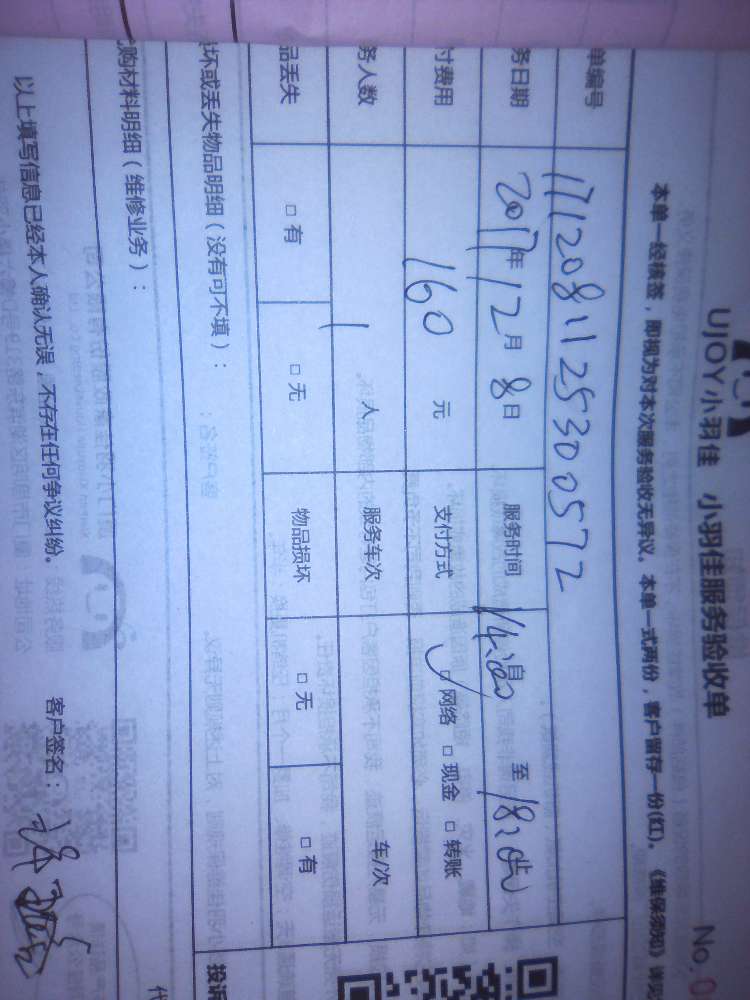 UJOY小羽佳 小羽佳服务验收单 No.0
本单一经核签，即视为对本次服务验收无异议。本单一式两份，客户留存一份(红)。《维保须知》详见
单编号 1712081125300572
务日期 2017年12月8日 服务时间 14:00 至 18:00
付费用 160 元 支付方式 □网络 □现金 □转账
务人数 1 人 服务车次 车/次
品丢失 □有 □无 物品损坏 □无 □有
损坏或丢失物品明细（没有可不填）： 投诉
购材料明细（维修业务）：
以上填写信息已经本人确认无误，不存在任何争议纠纷。 客户签名：